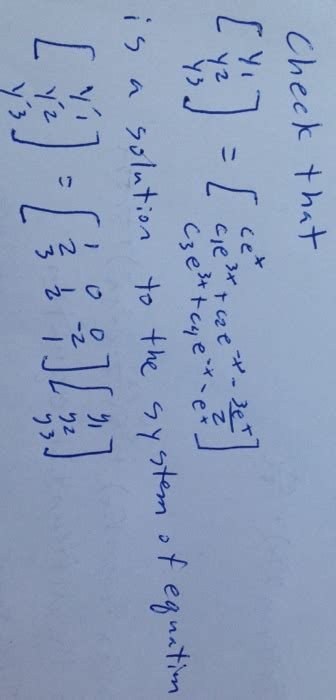 Check that
[y1 y2 y3] = [ce^x c1e^3x + c2e^-x - 3e^x/2 c3e^3x + c4e^-x - e^x]
is a solution to the system of equation
[y'1 y'2 y'3] = [1 0 0 2 1 -2 3 2 1] [y1 y2 y3]